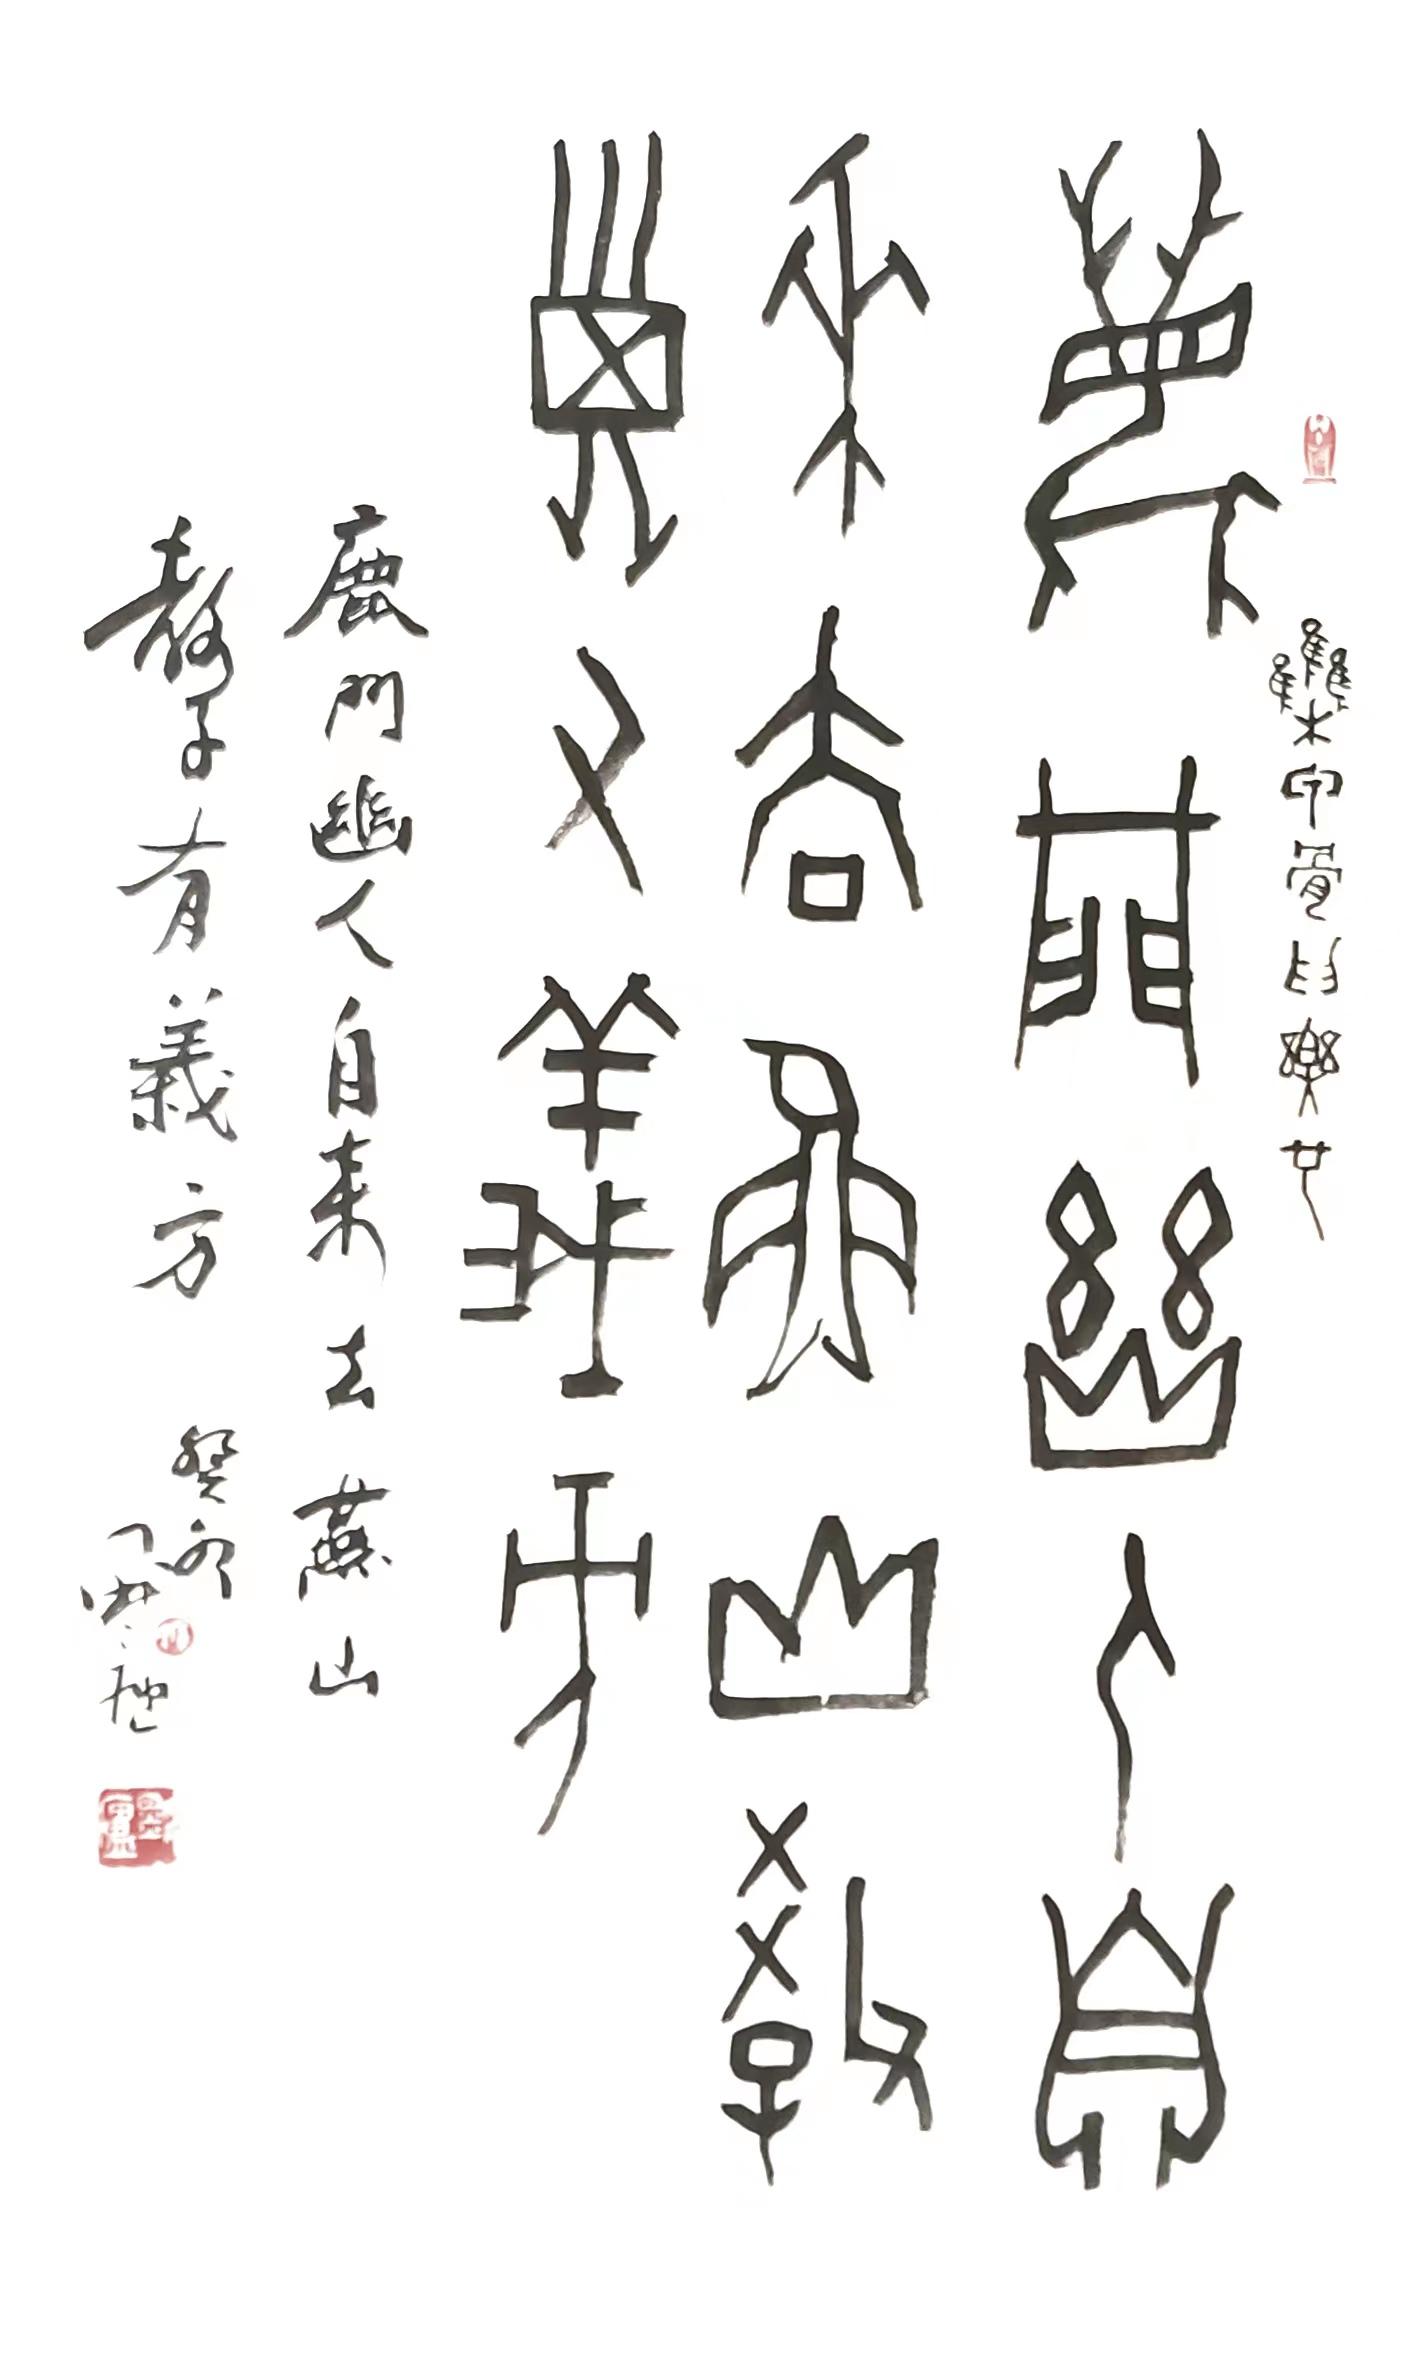 雧甲骨
鹿門幽人自
來去燕山教
子又義方
鹿門幽人自来去燕山
教子有義方
癸卯